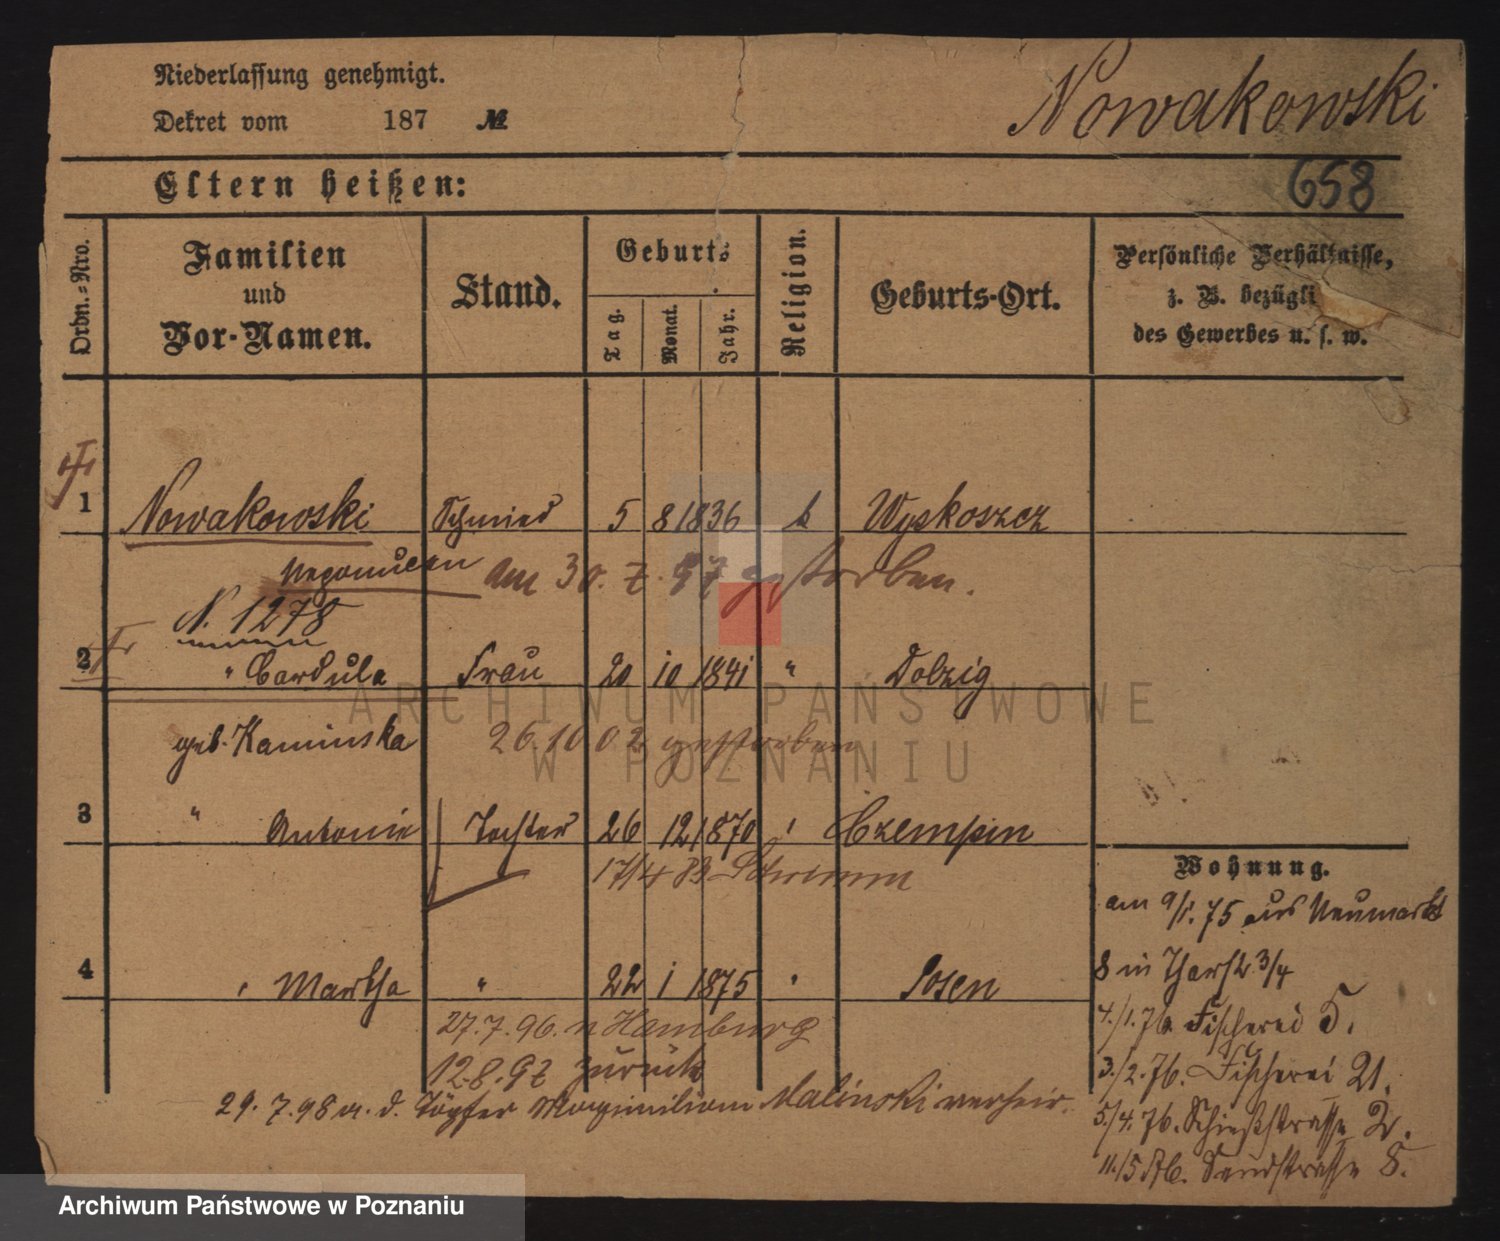 Niederlassung genehmigt.
Dekret vom 187 №
Nowakowski
658
Eltern heißen:
Ordn.-Nro.
Familien und Vor-Namen.
Stand.
Geburts
Tag.
Monat.
Jahr.
Religion.
Geburts-Ort.
Persönliche Verhältnisse,
z. B. bezügli
des Gewerbes u. s. w.
1 Nowakowski Schmied 5 8 1836 k Wyskoszcz
Nepomucen am 30. 7. 97 gestorben.
N. 1278
2 " Cordula Frau 20 10 1841 " Dolzig
geb. Kaminska 26 10 02 gestorben
3 " Antonie Tochter 26 12 1870 " Czempin
17/4 93 Schrimm
4 " Martha " 22 1 1875 " Posen
27. 7. 96. n Hamburg
12.8.97 zurück
29. 7. 98 a. d. Töpfer Maximilian Malinski verheir.
Wohnung.
am 9/1. 75 aus Neumarkt
8 in 3/4
4./1. 76. Fischerei 5.
3./2. 76. Fischerei 21.
5/4. 76. Schießstrasse 2.
11./5 76. Sandstrasse 8.
ARCHIWUM PAŃSTWOWE
W POZNANIU
Archiwum Państwowe w Poznaniu